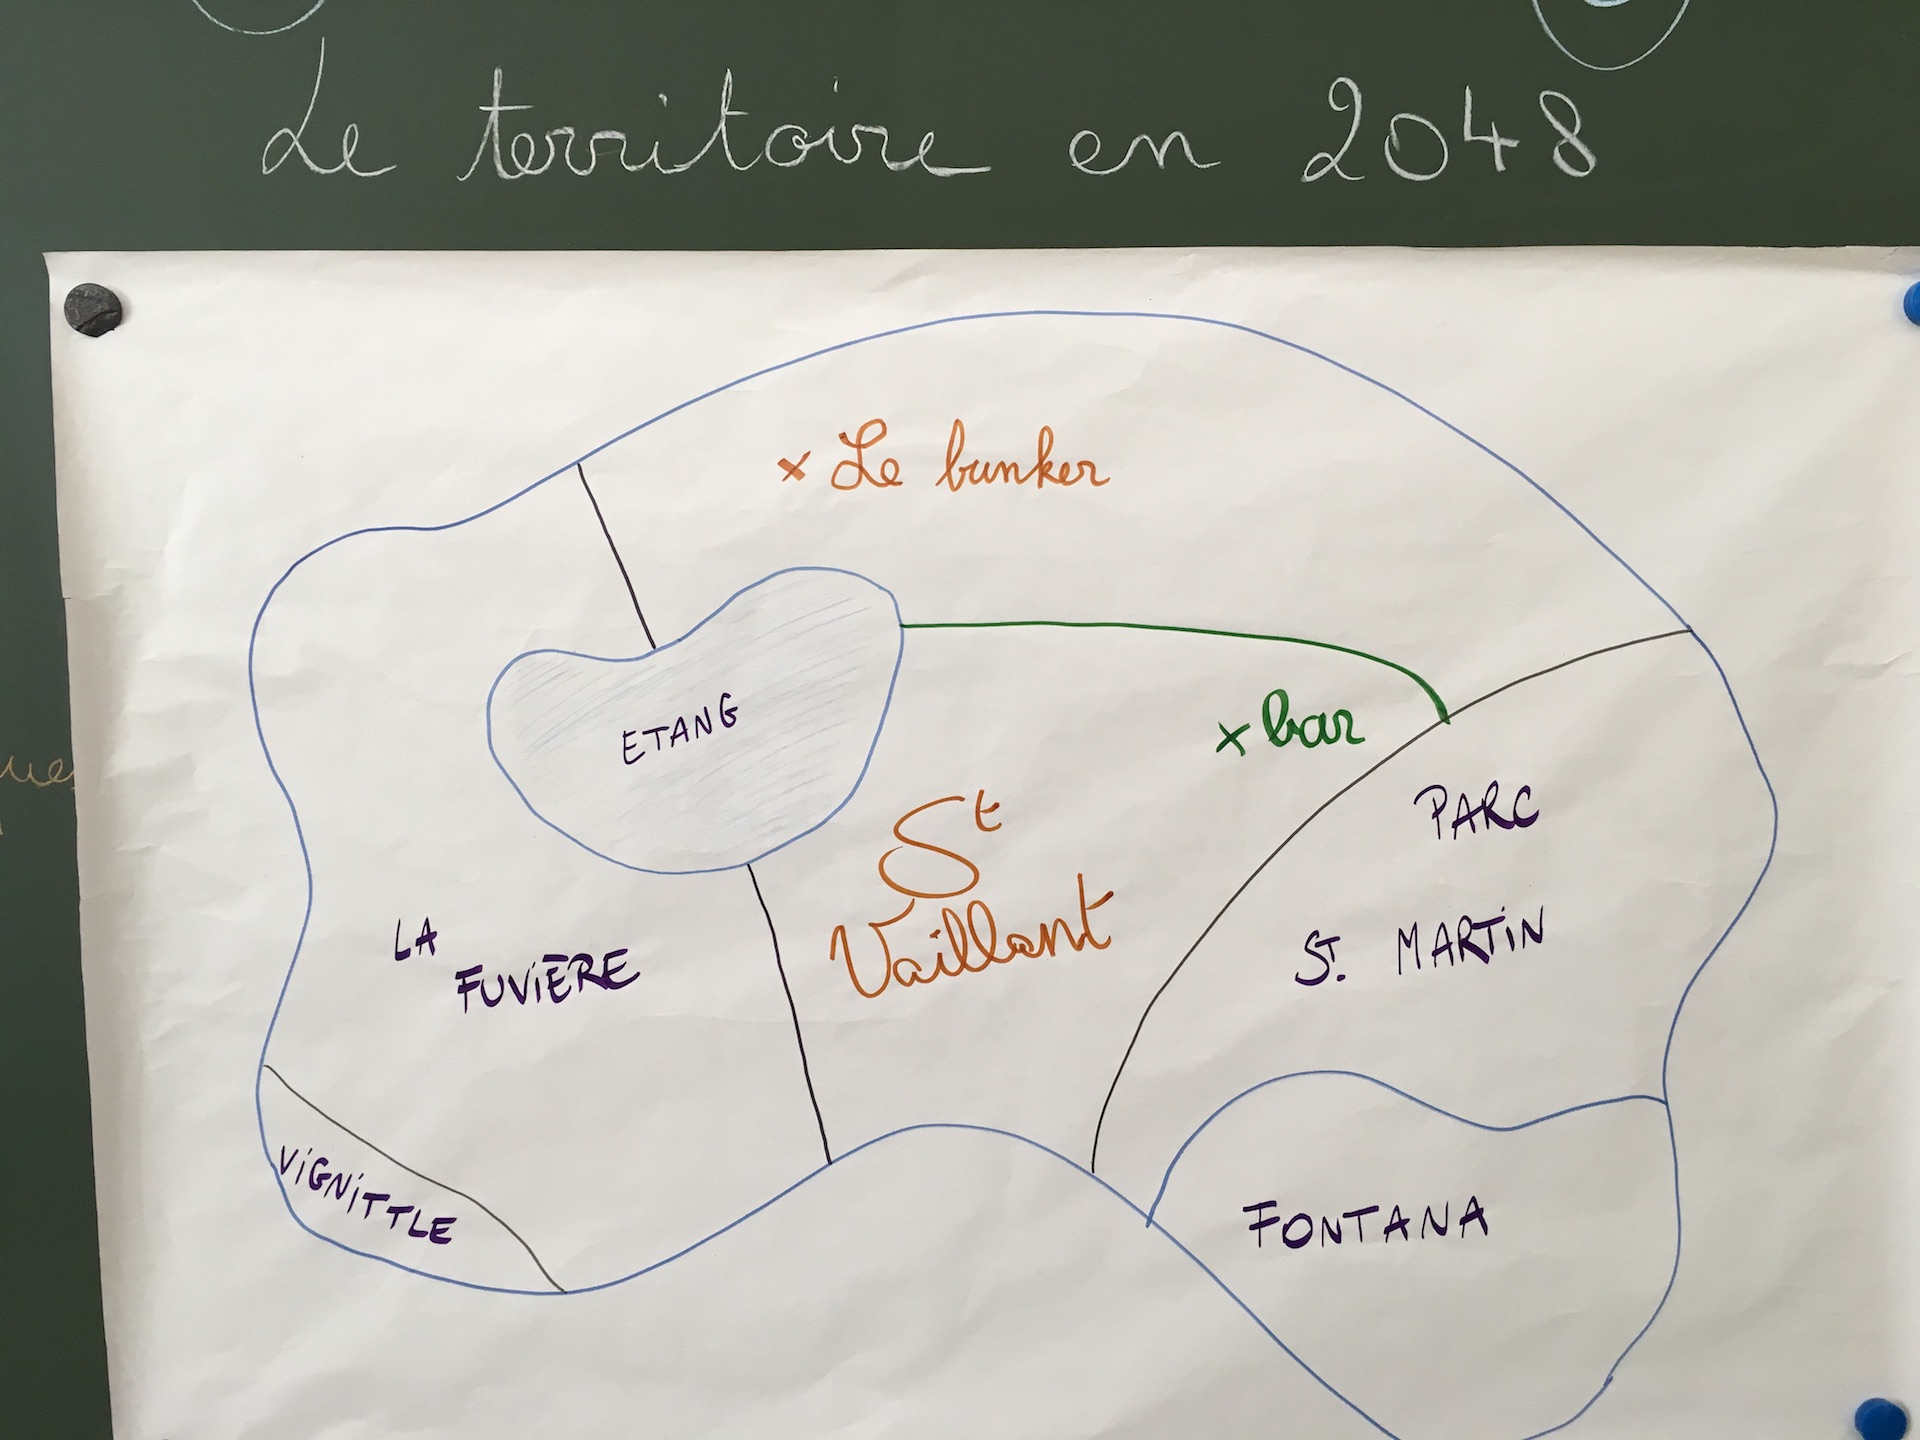 Le territoire en 2048
× Le bunker
ETANG
× bar
St
Vaillant
PARC
ST. MARTIN
LA
FUVIÈRE
VIGNITTLE
FONTANA